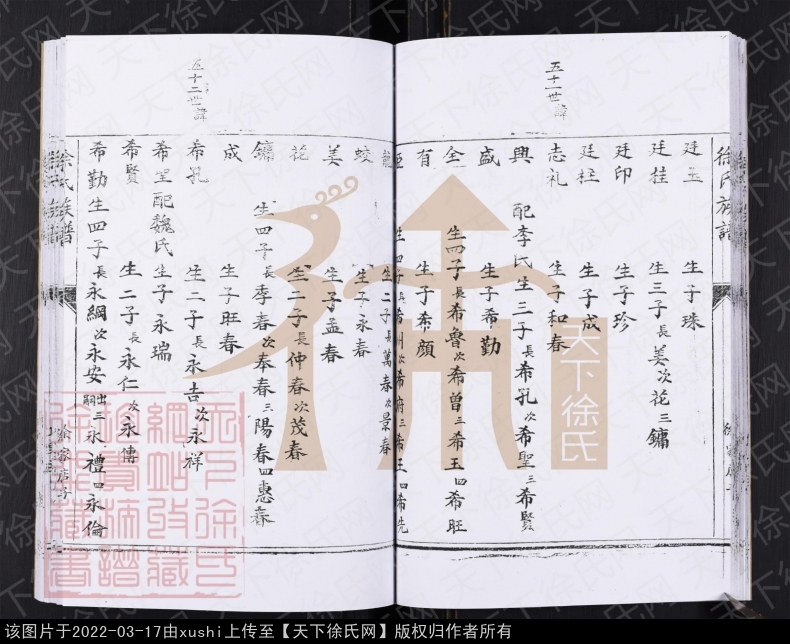 徐氏族譜
五十一世諱
廷玉 生子珠
廷桂 生三子長姜次花三鏞
廷印 生子珍
廷枉 生子成
志礼 生子和春
興 配李氏生三子長希孔次希聖三希賢
盛 生子希勤
全 生四子長希魯次希曾三希玉四希旺
有 生子希顏
生四子長希州次希府三希王四希先
龍 生二子長萬春次景春
蛟 生子永春
姜 生子孟春
花 生二子長仲春次茂春
鏞 生四子長季春次奉春三陽春四惠春
成 生子旺春
五十二世諱
希孔 生二子長永吉次永祥
希聖配魏氏 生子永瑞
希賢 生二子長永仁次永傳
希勤生四子長永綱次永安出嗣三永禮四永倫
徐氏族譜
天下徐氏
天下徐氏网
该图片于2022-03-17由xushi上传至【天下徐氏网】版权归作者所有